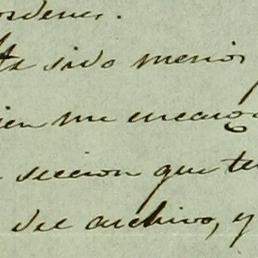 ordenes.
ha sido menos
ien me encarg
seccion que te
del archivo, y